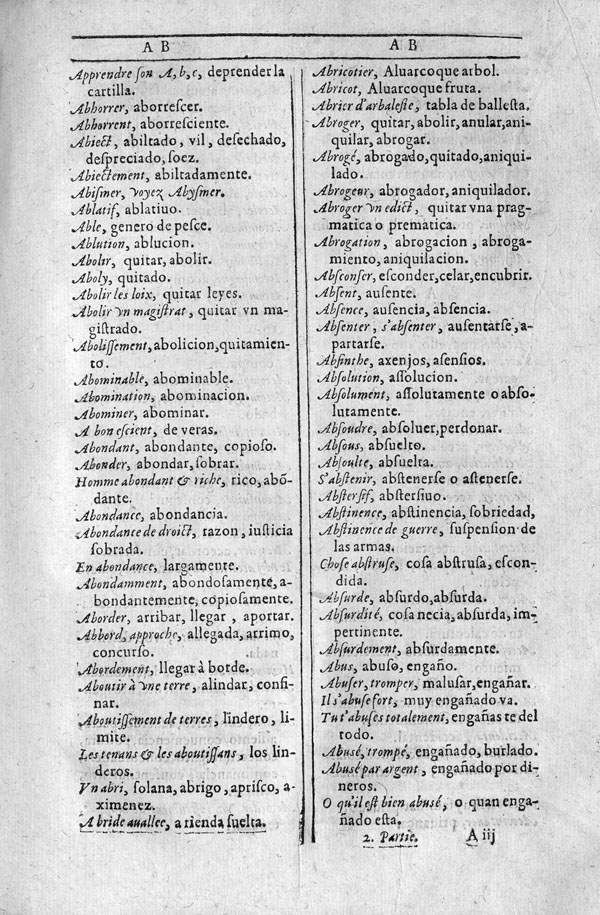 A B
Apprendre ſon A, b, c, deprender la
cartilla.
Abhorrer, aborreſcer.
Abhorrent, aborreſciente.
Abiect, abiltado, vil, deſechado,
deſpreciado, ſoez.
Abiectement, abiltadamente.
Abiſmer, voyez Abyſmer.
Ablatif, ablatiuo.
Able, genero de pesce.
Ablution, ablucion.
Abolir, quitar, abolir.
Aboly, quitado.
Abolir les loix, quitar leyes.
Abolir vn magiſtrat, quitar vn ma-
giſtrado.
Aboliſſement, abolicion, quitamien-
to.
Abominable, abominable.
Abomination, abominacion.
Abominer, abominar.
A bon eſcient, de veras.
Abondant, abondante, copioſo.
Abonder, abondar, ſobrar.
Homme abondant & riche, rico, abõ-
dante.
Abondance, abondancia.
Abondance de droict, razon, iuſticia
ſobrada.
En abondance, largamente.
Abondamment, abondoſamente, a-
bondantemente, copioſamente.
Aborder, arribar, llegar, aportar.
Abbord, approche, allegada, arrimo,
concurſo.
Abordement, llegar à borde.
Aboutir à vne terre, alindar, confi-
nar.
Aboutiſſement de terres, lindero, li-
mite.
Les tenans & les aboutiſſans, los lin-
deros.
Vn abri, ſolana, abrigo, apriſco, a-
ximenez.
A bride auallee, a rienda ſuelta.
A B
Abricotier, Aluarcoque arbol.
Abricot, Aluarcoque fruta.
Abrier d'arbaleſte, tabla de balleſta.
Abroger, quitar, abolir, anular, ani-
quilar, abrogar.
Abrogé, abrogado, quitado, aniqui-
lado.
Abrogeur, abrogador, aniquilador.
Abroger vn edict, quitar vna prag-
matica o prematica.
Abrogation, abrogacion, abroga-
miento, aniquilacion.
Abſconſer, eſconder, celar, encubrir.
Abſent, auſente.
Abſence, auſencia, abſencia.
Abſenter, s'abſenter, auſentarſe, a-
partarſe.
Abſinthe, axenjos, aſenſios.
Abſolution, aſſolucion.
Abſolument, aſſolutamente o abſo-
lutamente.
Abſoudre, abſoluer, perdonar.
Abſous, abſuelto.
Abſoulte, abſuelta.
S'abſtenir, abſtenerſe o aſtenerſe.
Abſterſif, abſterſiuo.
Abſtinence, abſtinencia, ſobriedad,
Abſtinence de guerre, ſuſpenſion de
las armas.
Choſe abſtruſe, coſa abſtruſa, eſcon-
dida.
Abſurde, abſurdo, abſurda.
Abſurdité, coſa necia, abſurda, im-
pertinente.
Abſurdement, abſurdamente.
Abus, abuſo, engaño.
Abuſer, tromper, maluſar, engañar.
Il s'abuſe fort, muy engañado va.
Tu t'abuſes totalement, engañas te del
todo.
Abuſé, trompé, engañado, burlado.
Abuſé par argent, engañado por di-
neros.
O qu'il eſt bien abuſé, o quan enga-
ñado eſta.
2. Partie. A iij